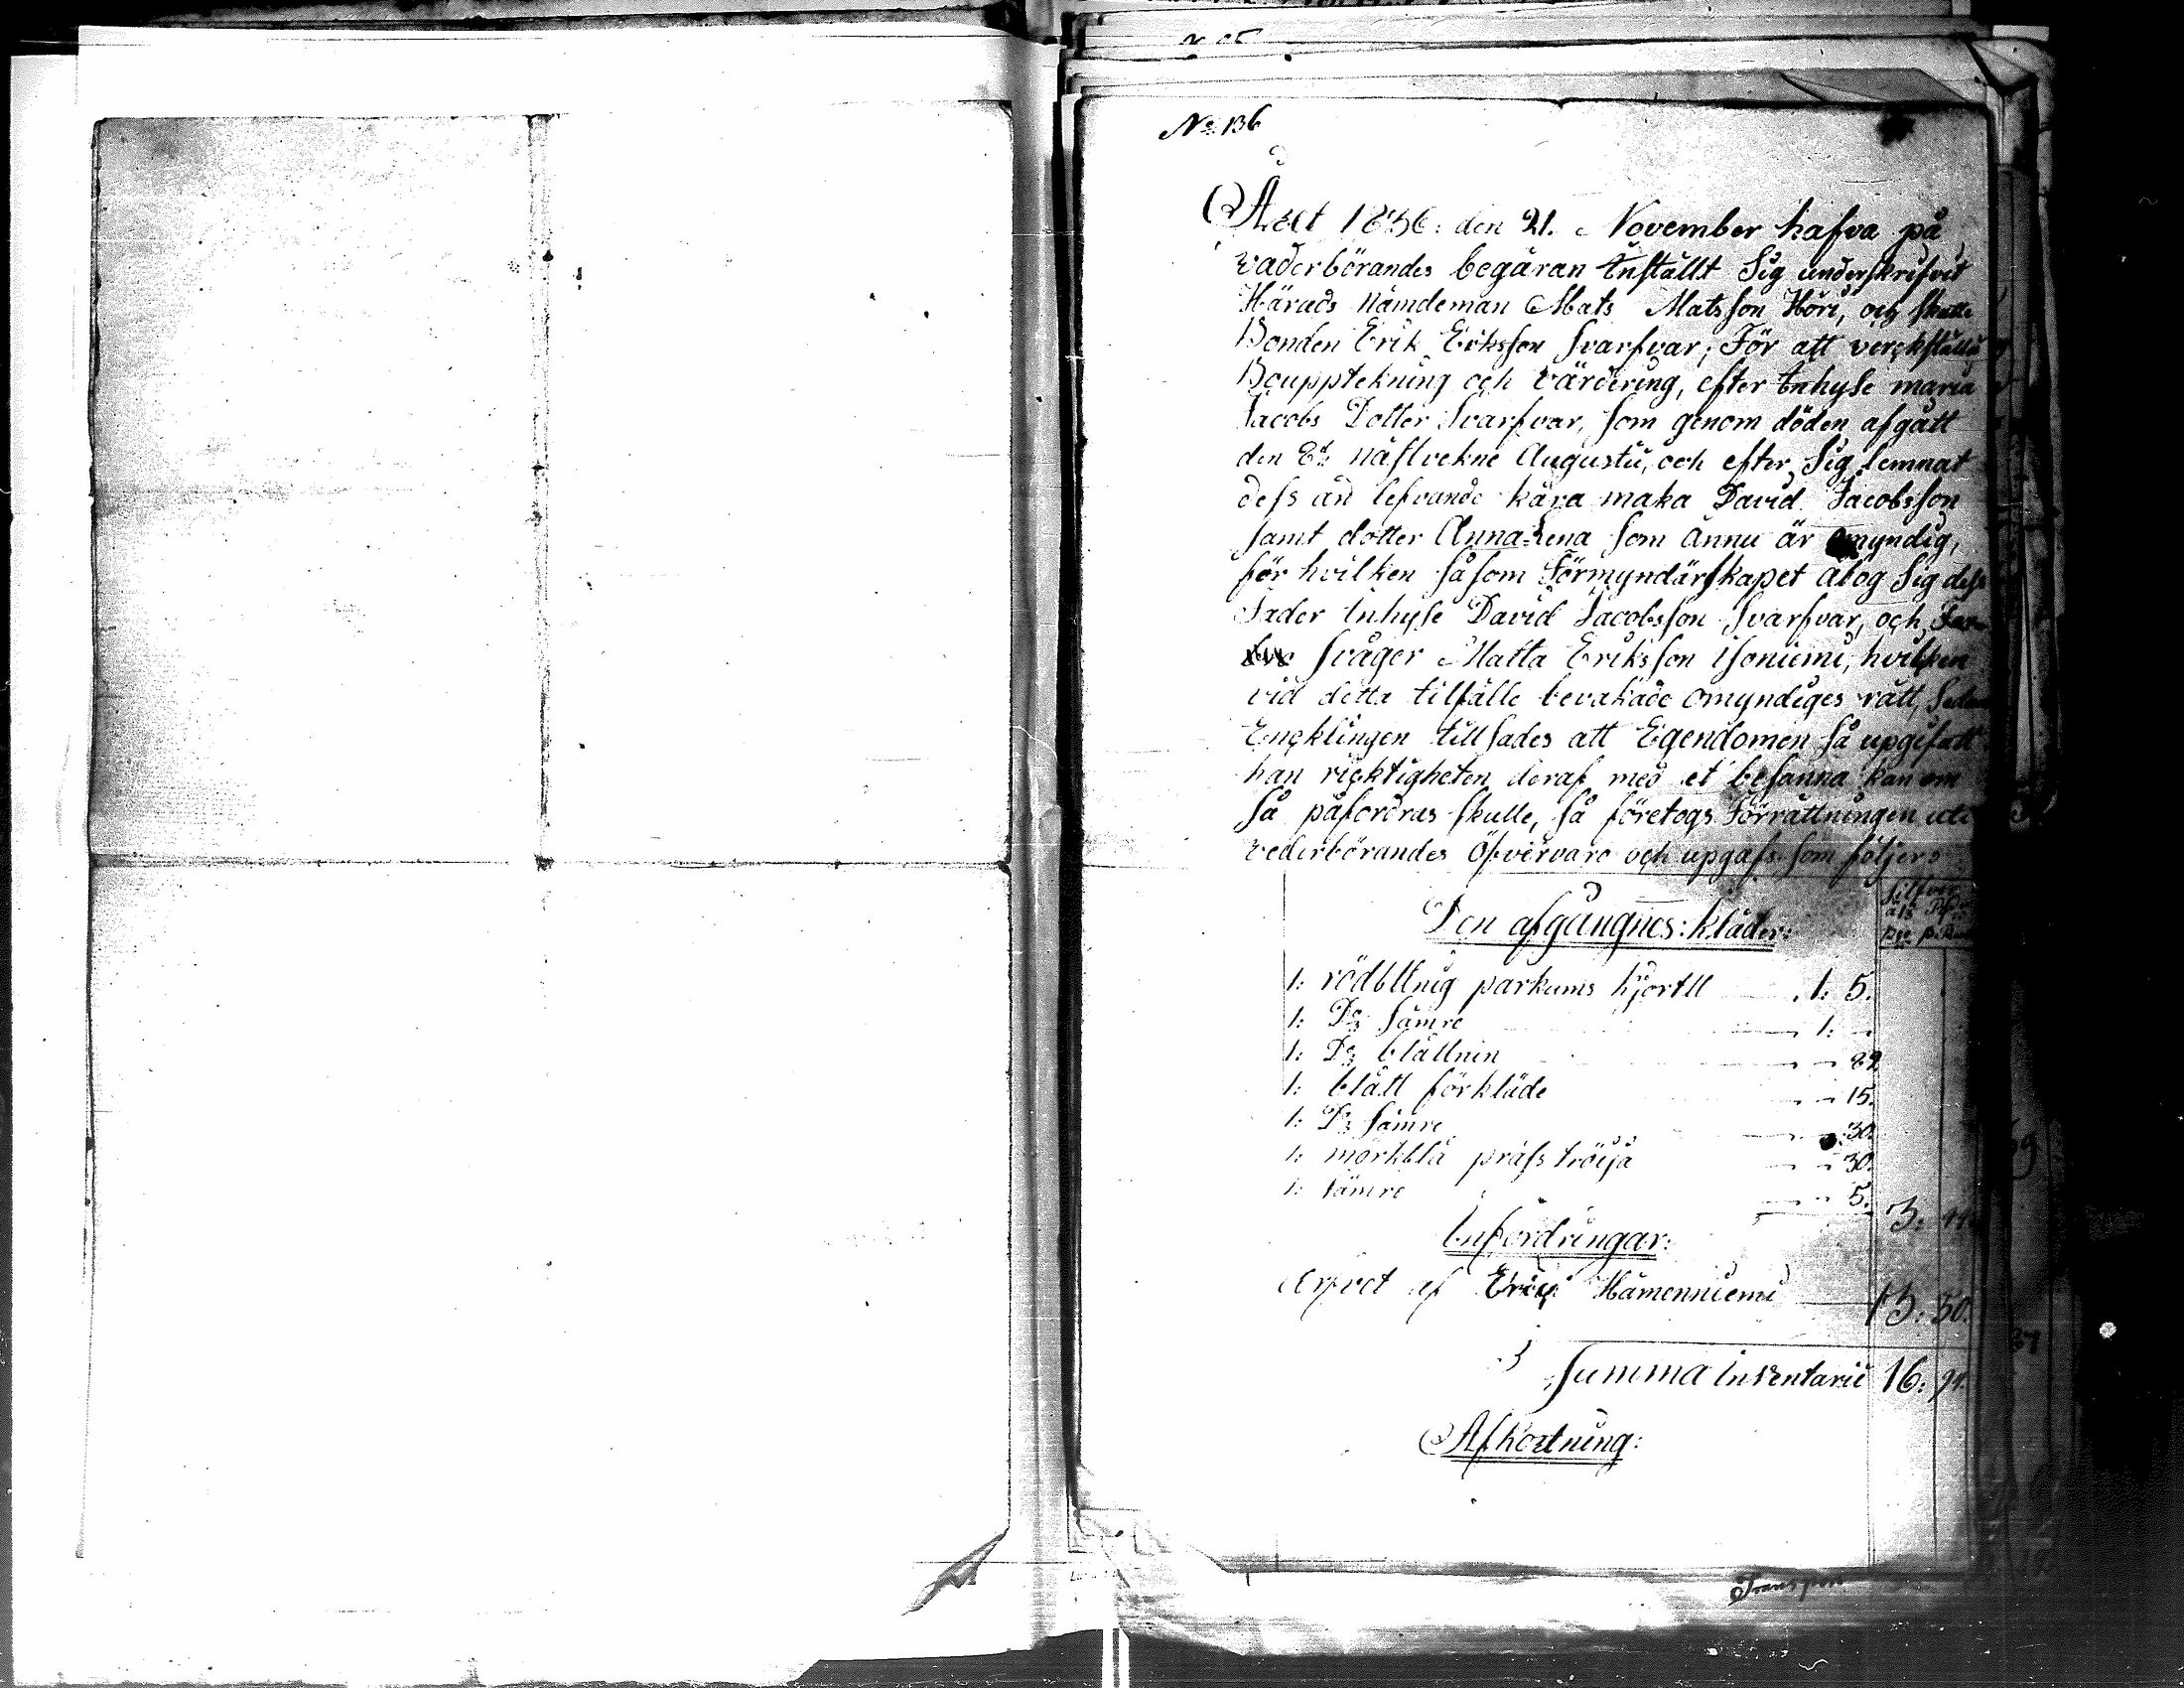 No 136
Året 1856: den 21. November hafva på
vaderbörandes begäran Inställt Sig underskrifvit
Härads nämdeman Mats Matsson Höri, och
Bonden Erik Eriksson Svarfvar, För att verckställa
Bouppteckning och värdering, efter Inhyse maria
Jacobs Dotter Svarfvar, som genom döden afgått
den näslvekne Augusti, och efter Sig lemnat
dess än lefvande kära maka David Jacobsson
samt dotter Anna Lena som ännu är omyndig,
för hvilken såsom Förmyndärskapet åtog Sig dess
Fader Inhyse David Jacobsson Svarfvar, och
Svåger Matts Eriksson isoniemi, hvilken
vid detta tilfälle bevakade omyndiges rätt,
Encklingen tillsades att Egendomen så upgifva
han ricktigheten deraf med et besanna kan om
så påfordras skulle, så företogs Förrättningen
vederbörandes öfvervaro och upgafs som följer:
Silfver
Den afgångnes: kläder:
1: rödblltnig parkums kjortll 1: 5.
1: Do sämre 1: —
1: Do blåttnin
1: blått förkläde 15.
1: Do sämre 30.
1: mörkblå präss tröija 30.
1: sämre 5.
3: 44
Infordringar:
Arfvet af Eric Hämenniemi 13: 50.
Summa inventarii 16: 94.
Afkortning:
Transport